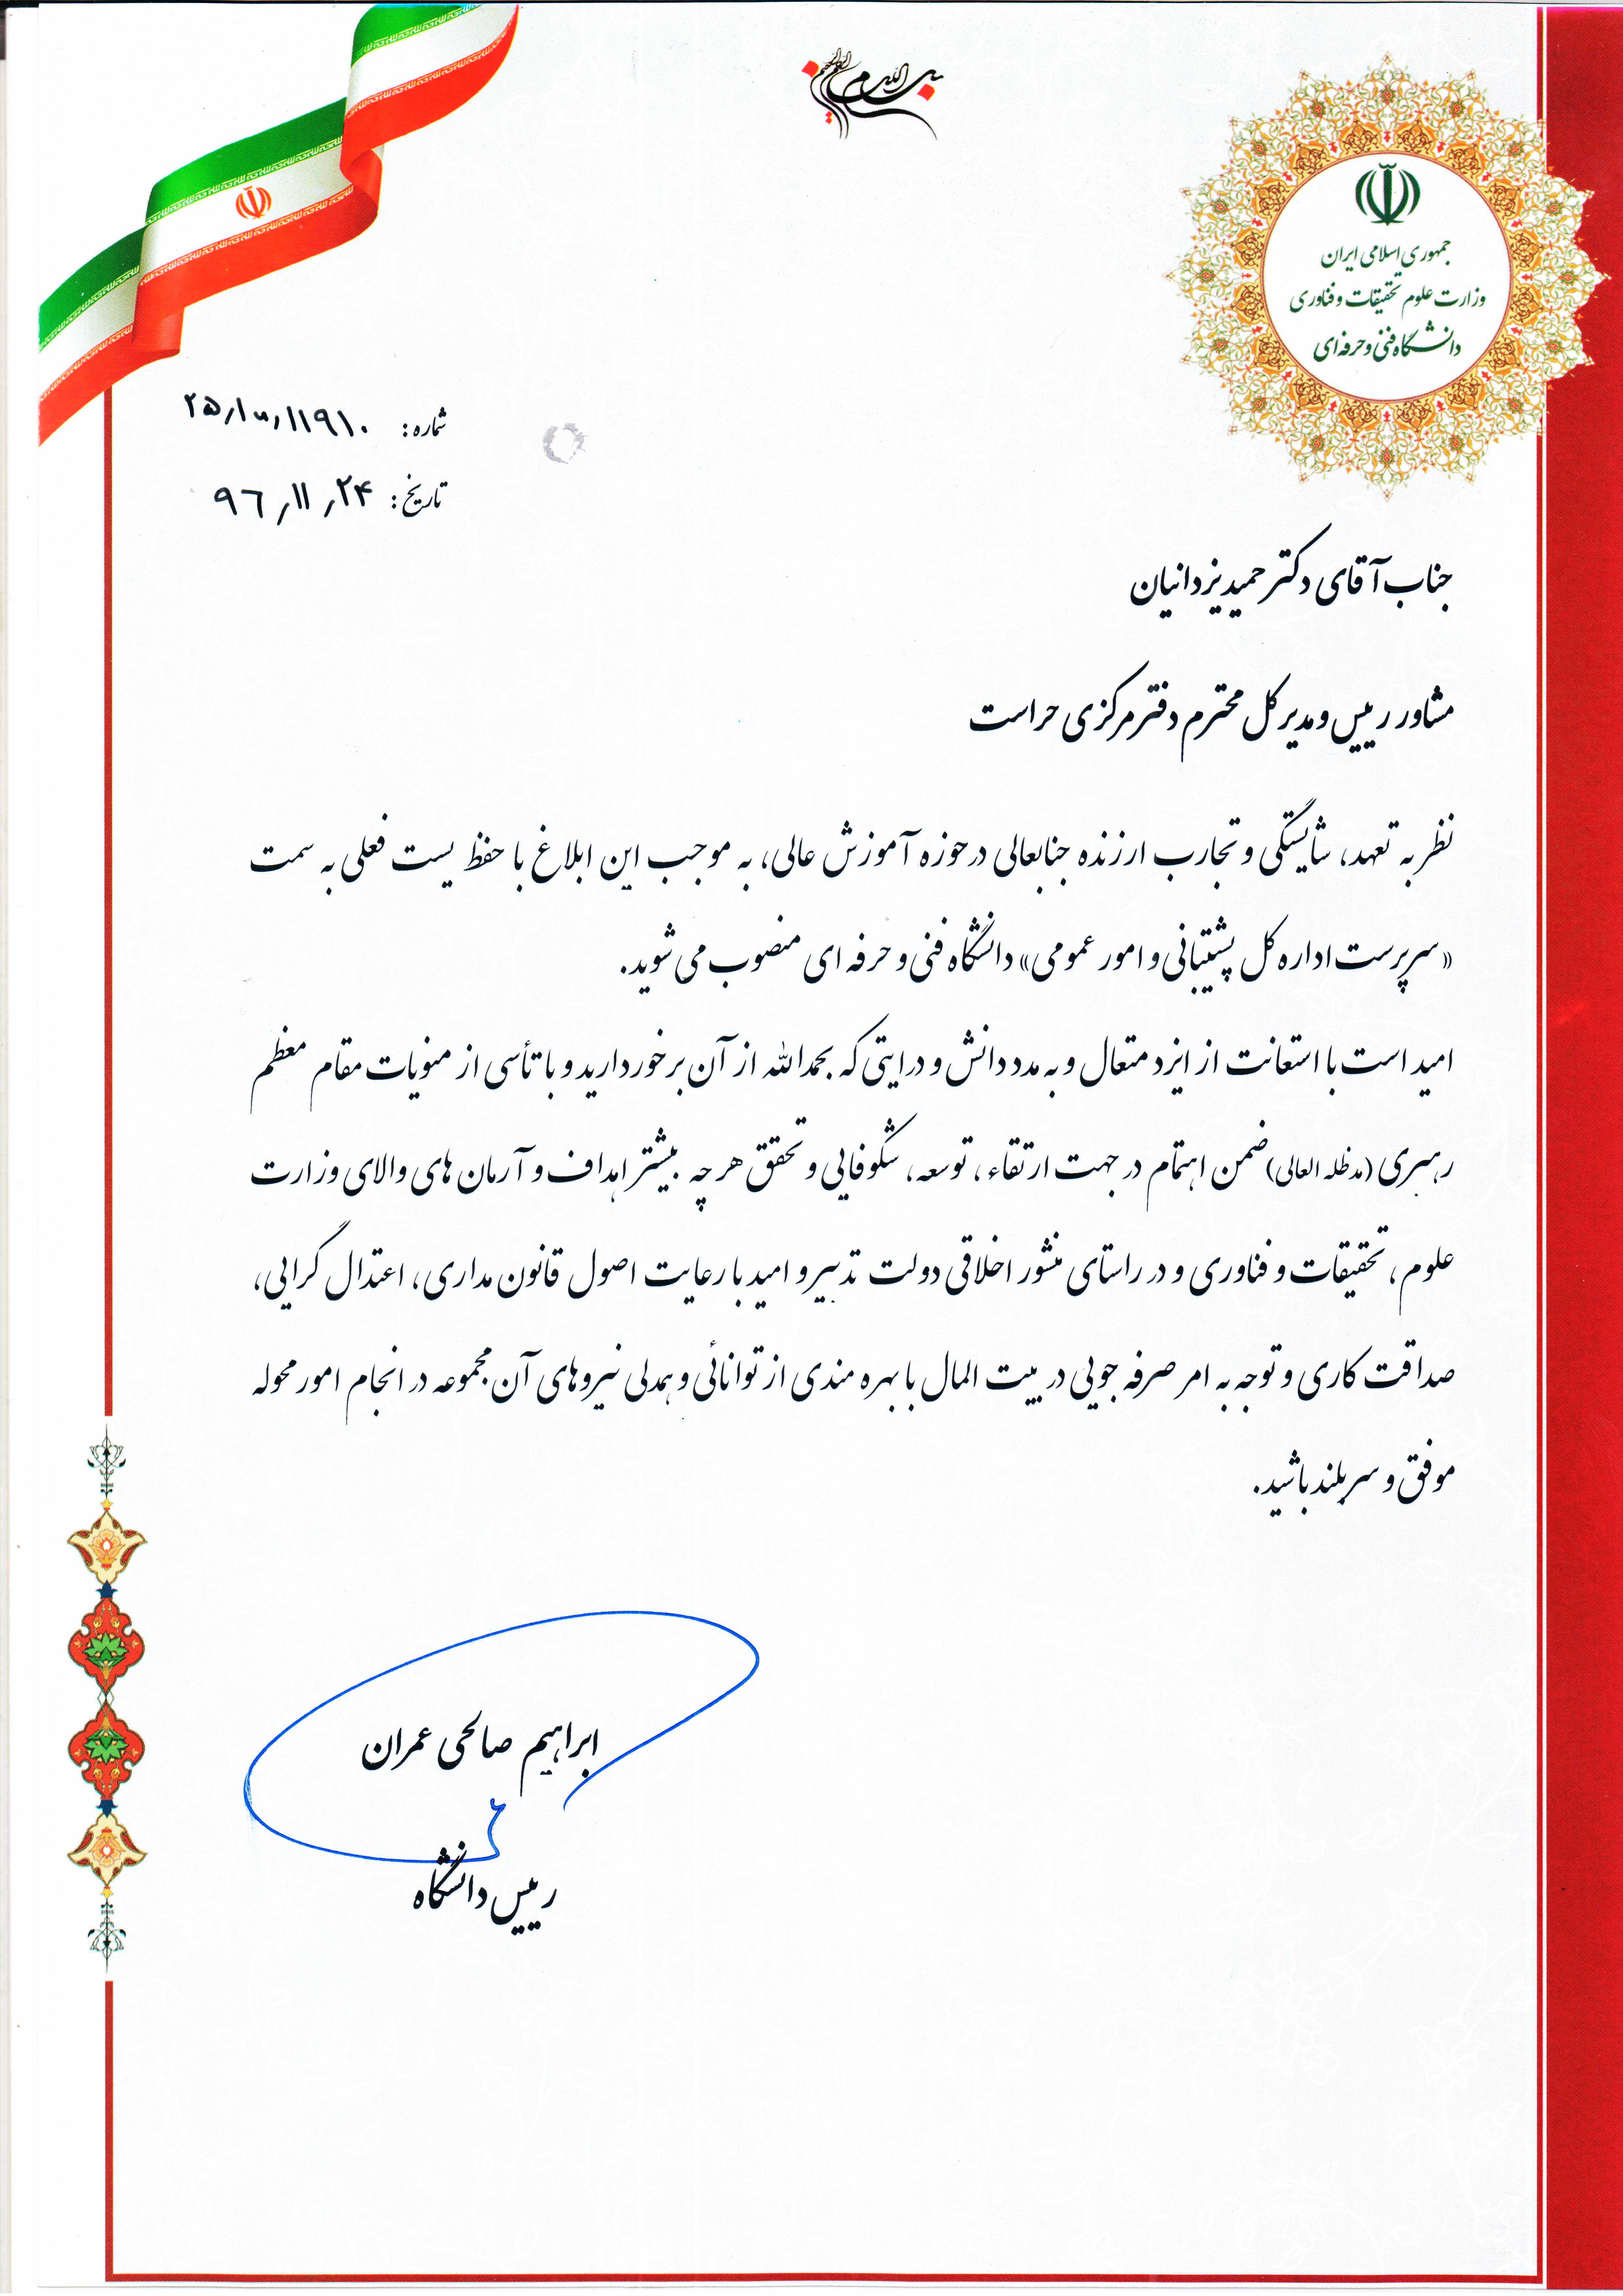 بسم الله الرحمن الرحیم
جمهوری اسلامی ایران
وزارت علوم تحقیقات و فناوری
دانشگاه فنی و حرفه‌ای
شماره:
تاریخ: ۹۶/۱۱/۲۴
جناب آقای دکتر حمید یزدانیان
مشاور رییس و مدیر کل محترم دفتر مرکزی حراست
نظر به تعهد، شایستگی و تجارب ارزنده جنابعالی در حوزه آموزش عالی، به موجب این ابلاغ با حفظ پست فعلی به سمت
«سرپرست اداره کل پشتیبانی و امور عمومی» دانشگاه فنی و حرفه ای منصوب می شوید.
امید است با استعانت از ایزد متعال و به مدد دانش و درایتی که بحمدالله از آن برخوردارید و با تأسی از منویات مقام معظم
رهبری (مدظله العالی) ضمن اهتمام در جهت ارتقاء، توسعه، شکوفایی و تحقق هر چه بیشتر اهداف و آرمان های والای وزارت
علوم، تحقیقات و فناوری و در راستای منشور اخلاقی دولت تدبیر و امید با رعایت اصول قانون مداری، اعتدال گرایی،
صداقت کاری و توجه به امر صرفه جویی در بیت المال با بهره مندی از توانائی و همدلی نیروهای آن مجموعه در انجام امور محوله
موفق و سربلند باشید.
ابراهیم صالحی عمران
رییس دانشگاه